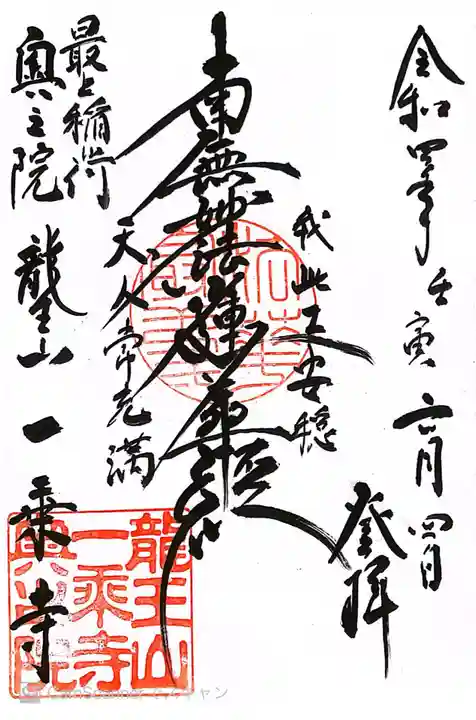 令和四年壬寅六月四日
登拝
我此土安穏
南無妙法蓮華経
天人常充満
最上稲荷
奥之院 龍王山 一乗寺
龍王山
一乗寺
奥之院
CamScanner でスキャン